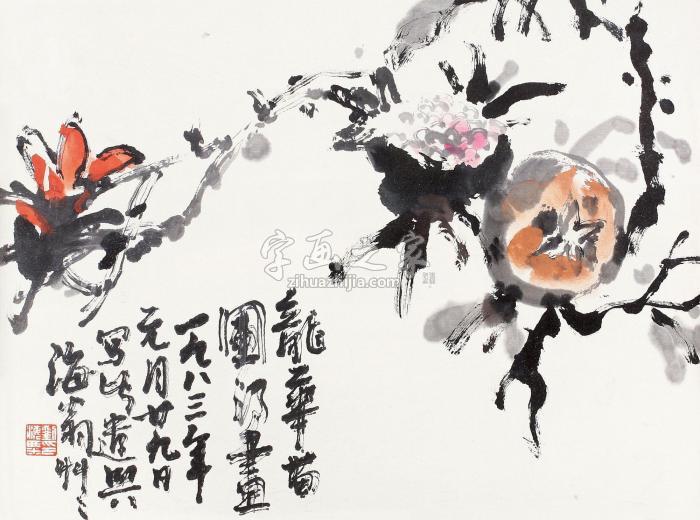 字画之家
zihuazhijia.com
龍華苗
圃畫
一九八三年
元月廿九日
寫此遣興
海翁艸〻